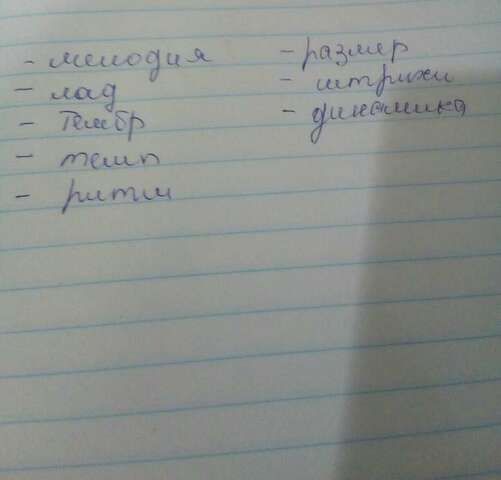 - мелодия
- лад
- Тембр
- темп
- ритм
- размер
- штрихи
- динамика